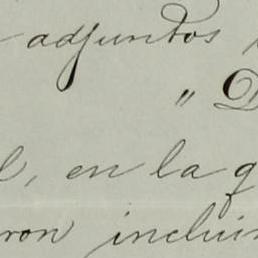 adjuntos
" D
l, en la q
ron inclui